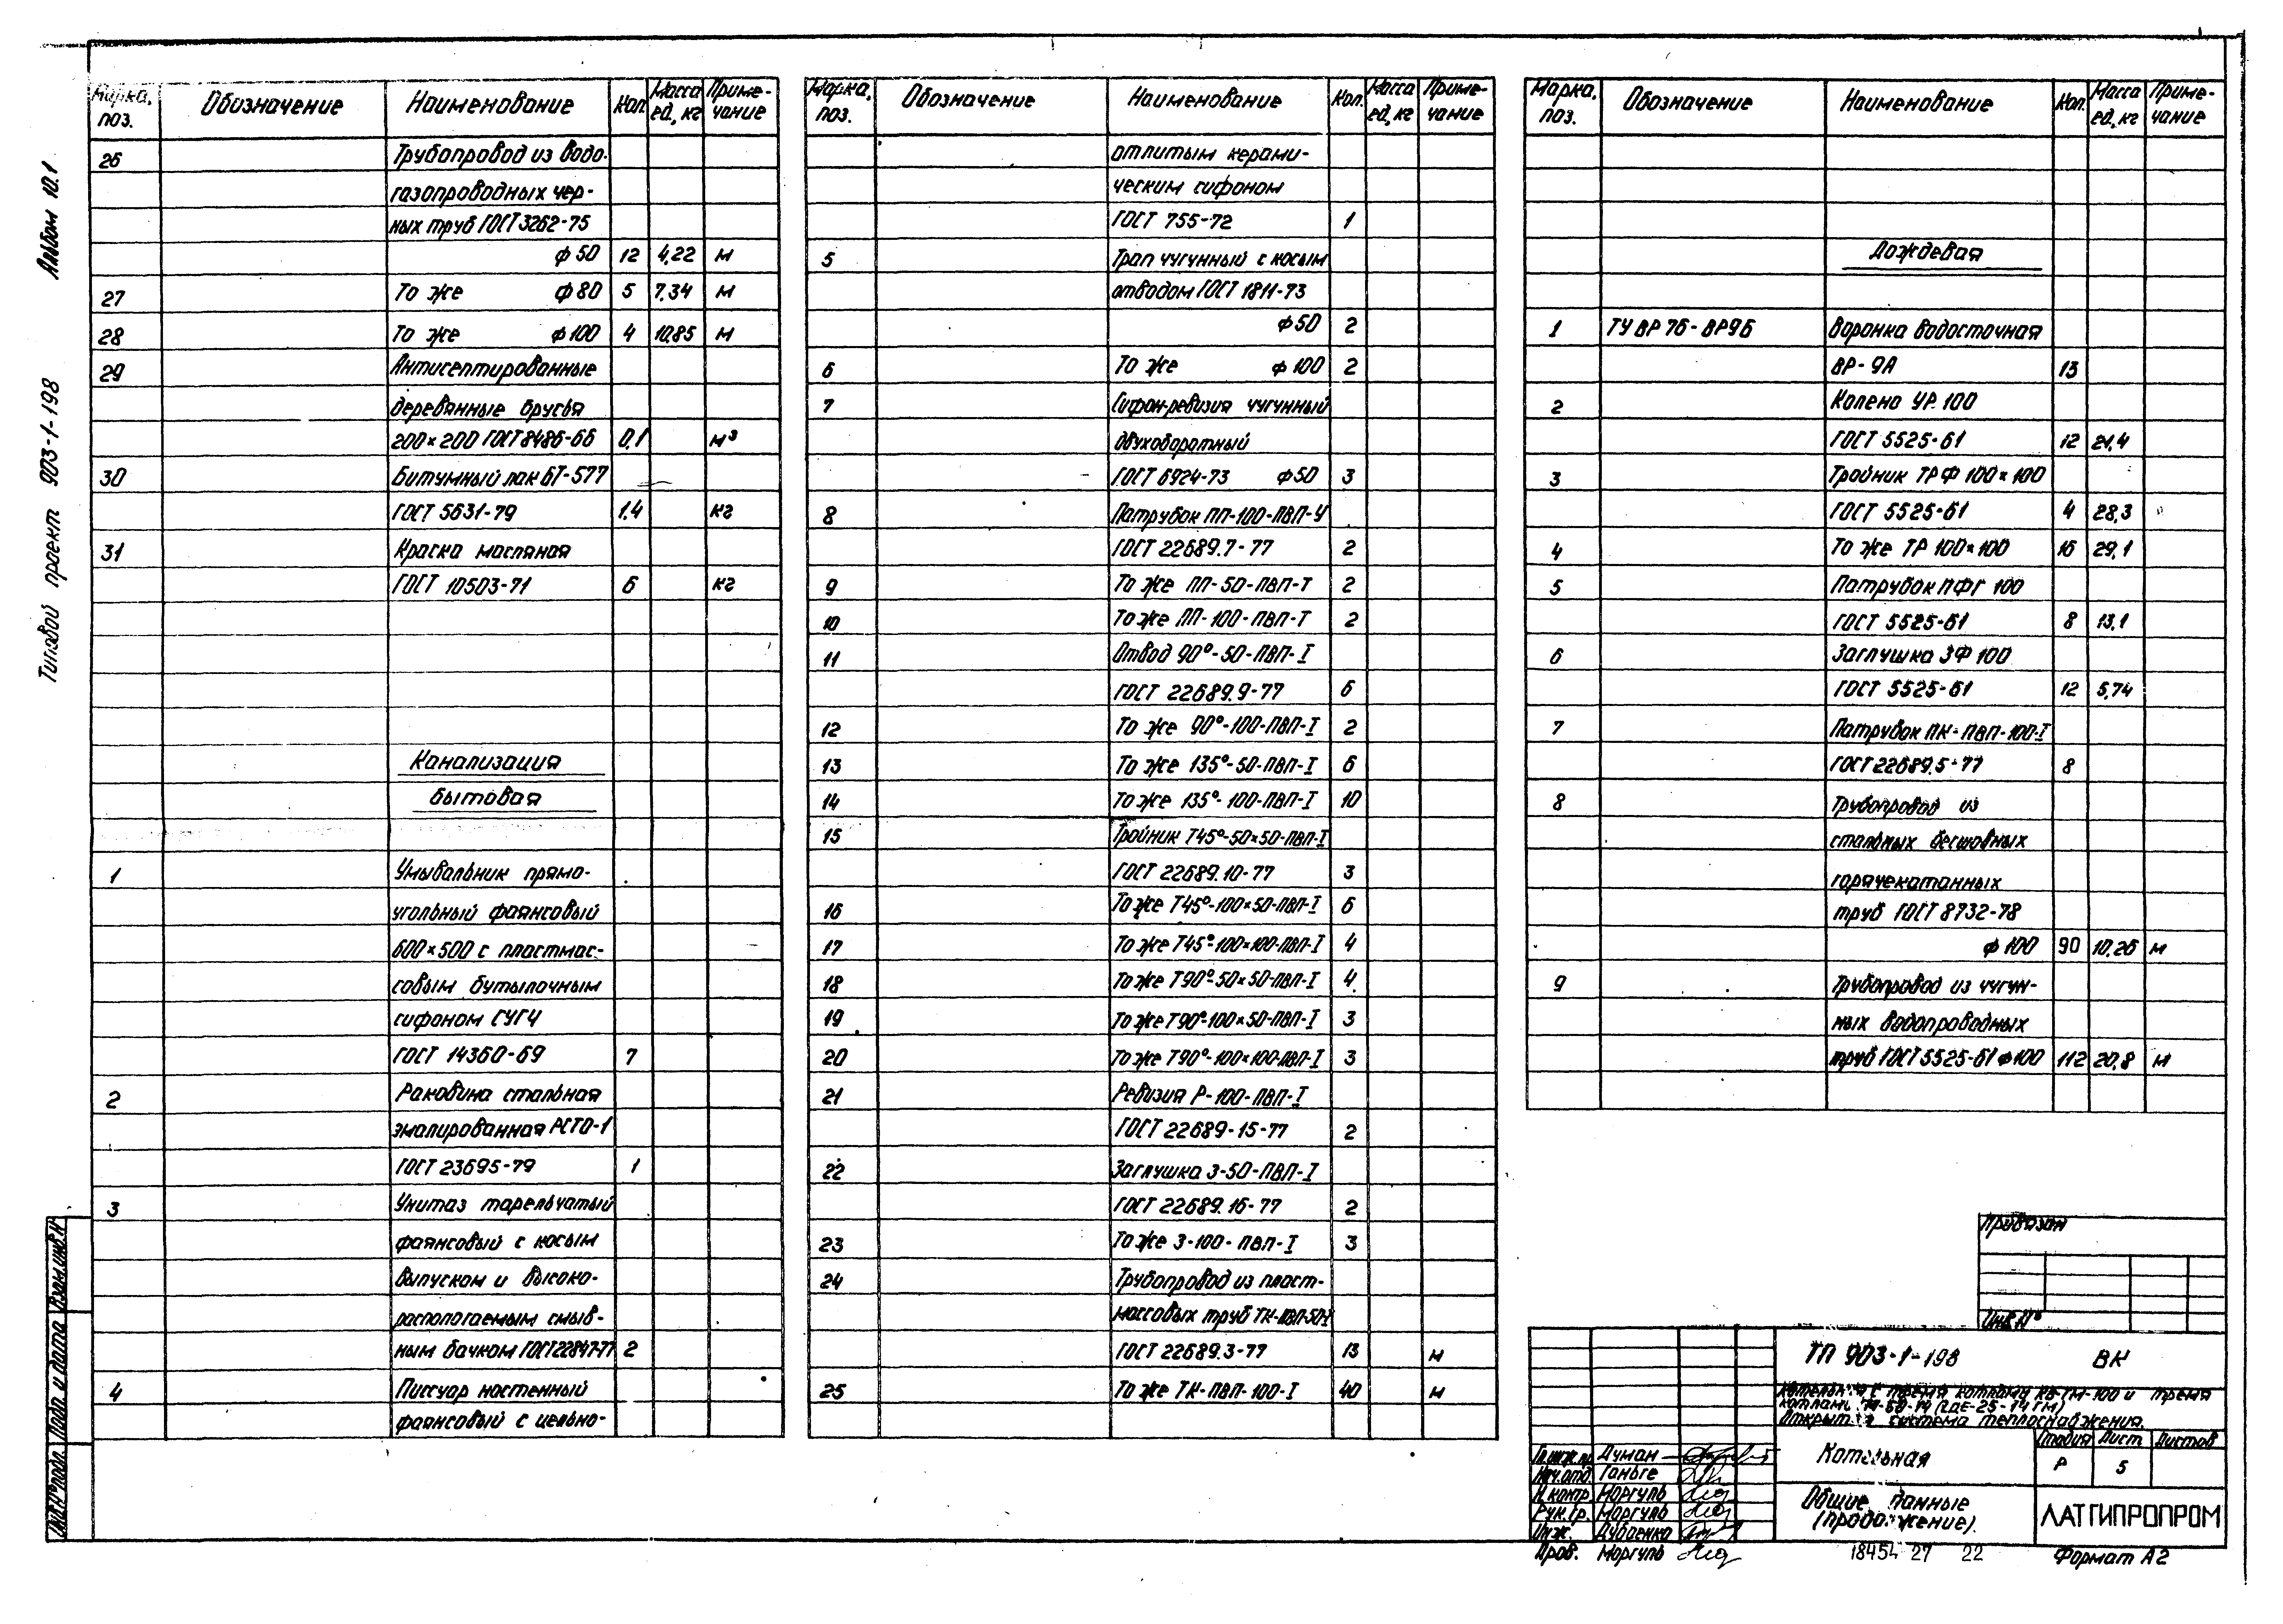 Альбом 10.1
Типовой проект 903-1-198
Марка, поз. Обозначение Наименование Кол. Масса ед, кг Приме-чание
26 Трубопровод из водо-
газопроводных чер-
ных труб ГОСТ 3262-75
ф50 12 4,22 м
27 То же ф80 5 7,34 м
28 То же ф100 4 10,85 м
29 Антисептированные
деревянные брусья
200×200 ГОСТ 8486-66 0,1 м³
30 Битумный лак БТ-577
ГОСТ 5631-79 1,4 кг
31 Краска масляная
ГОСТ 10503-71 6 кг
Канализация
бытовая
1 Умывальник прямо-
угольный фаянсовый
600×500 с пластмас-
совым бутылочным
сифоном СУГЧ
ГОСТ 14360-69 7
2 Раковина стальная
эмалированная РСТО-1
ГОСТ 23695-79 1
3 Унитаз тарельчатый
фаянсовый с косым
выпуском и высоко-
распологаемым смыв-
ным бачком ГОСТ 22847-77 2
4 Писсуар настенный
фаянсовый с цельно-
Марка, поз. Обозначение Наименование Кол. Масса ед, кг Приме-чание
отлитым керами-
ческим сифоном
ГОСТ 755-72 1
5 Трап чугунный с косым
отводом ГОСТ 1811-73
ф50 2
6 То же ф100 2
7 Сифон-ревизия чугунный
двухоборатный
ГОСТ 6924-73 ф50 3
8 Патрубок ПП-100-ПВП-У
ГОСТ 22689.7-77 2
9 То же ПП-50-ПВП-Т 2
10 То же ПП-100-ПВП-Т 2
11 Отвод 90°-50-ПВП-I
ГОСТ 22689.9-77 6
12 То же 90°-100-ПВП-I 2
13 То же 135°-50-ПВП-I 6
14 То же 135°-100-ПВП-I 10
15 Тройник Т45°-50×50-ПВП-I
ГОСТ 22689.10-77 3
16 То же Т45°-100×50-ПВП-I 6
17 То же Т45°-100×100-ПВП-I 4
18 То же Т90°-50×50-ПВП-I 4
19 То же Т90°-100×50-ПВП-I 3
20 То же Т90°-100×100-ПВП-I 3
21 Ревизия Р-100-ПВП-I
ГОСТ 22689-15-77 2
22 Заглушка З-50-ПВП-I
ГОСТ 22689.16-77 2
23 То же З-100-ПВП-I 3
24 Трубопровод из пласт-
массовых труб ТК-ПВП-50-I
ГОСТ 22689.3-77 13 м
25 То же ТК-ПВП-100-I 40 м
Марка, поз. Обозначение Наименование Кол. Масса ед, кг Приме-чание
Дождевая
1 ТУ ВР 7б-ВР9Б Воронка водосточная
ВР-9А 13
2 Колено УР 100
ГОСТ 5525-61 12 21,4
3 Тройник ТРФ 100×100
ГОСТ 5525-61 4 28,3
4 То же ТР 100×100 16 29,1
5 Патрубок ПФГ 100
ГОСТ 5525-61 8 13,1
6 Заглушка ЗФ 100
ГОСТ 5525-61 12 5,74
7 Патрубок ПК-ПВП-100-I
ГОСТ 22689.5-77 8
8 Трубопровод из
стальных бесшовных
горячекатанных
труб ГОСТ 8732-78
ф100 90 10,26 м
9 Трубопровод из чугун-
ных водопроводных
труб ГОСТ 5525-61 ф100 112 20,8 м
Привязан
Инв.№
ТП 903-1-198 ВК
Котельная с тремя котлами КВГМ-100 и тремя
Открытая система теплоснабжения.
Котельная
Стадия Лист Листов
Р 5
Общие данные
(продолжение).
ЛАТГИПРОПРОМ
Гл.инж.пр. Думан
Нач.отд. Ганьге
Н.контр. Моргуль
Рук.гр. Моргуль
Инж. Дубленко
Пров. Моргуль
18454 27 22
Формат А2
Инв.№подл. Подп. и дата Взам.инв.№